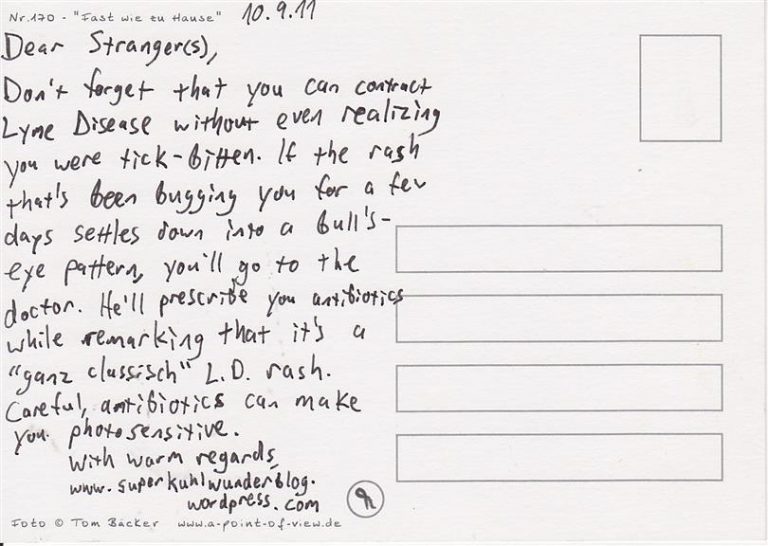 Nr.170 - "Fast wie zu Hause" 10.9.11
Dear Stranger(s),
Don't forget that you can contract
Lyme Disease without even realizing
you were tick-bitten. If the rash
that's been bugging you for a few
days settles down into a bull's-
eye pattern, you'll go to the
doctor. He'll prescribe you antibiotics
while remarking that it's a
"ganz classisch" L.D. rash.
Careful, antibiotics can make
you photosensitive.
With warm regards,
www.superkuhlwunderblog.
wordpress.com
Foto © Tom Bäcker www.a-point-of-view.de